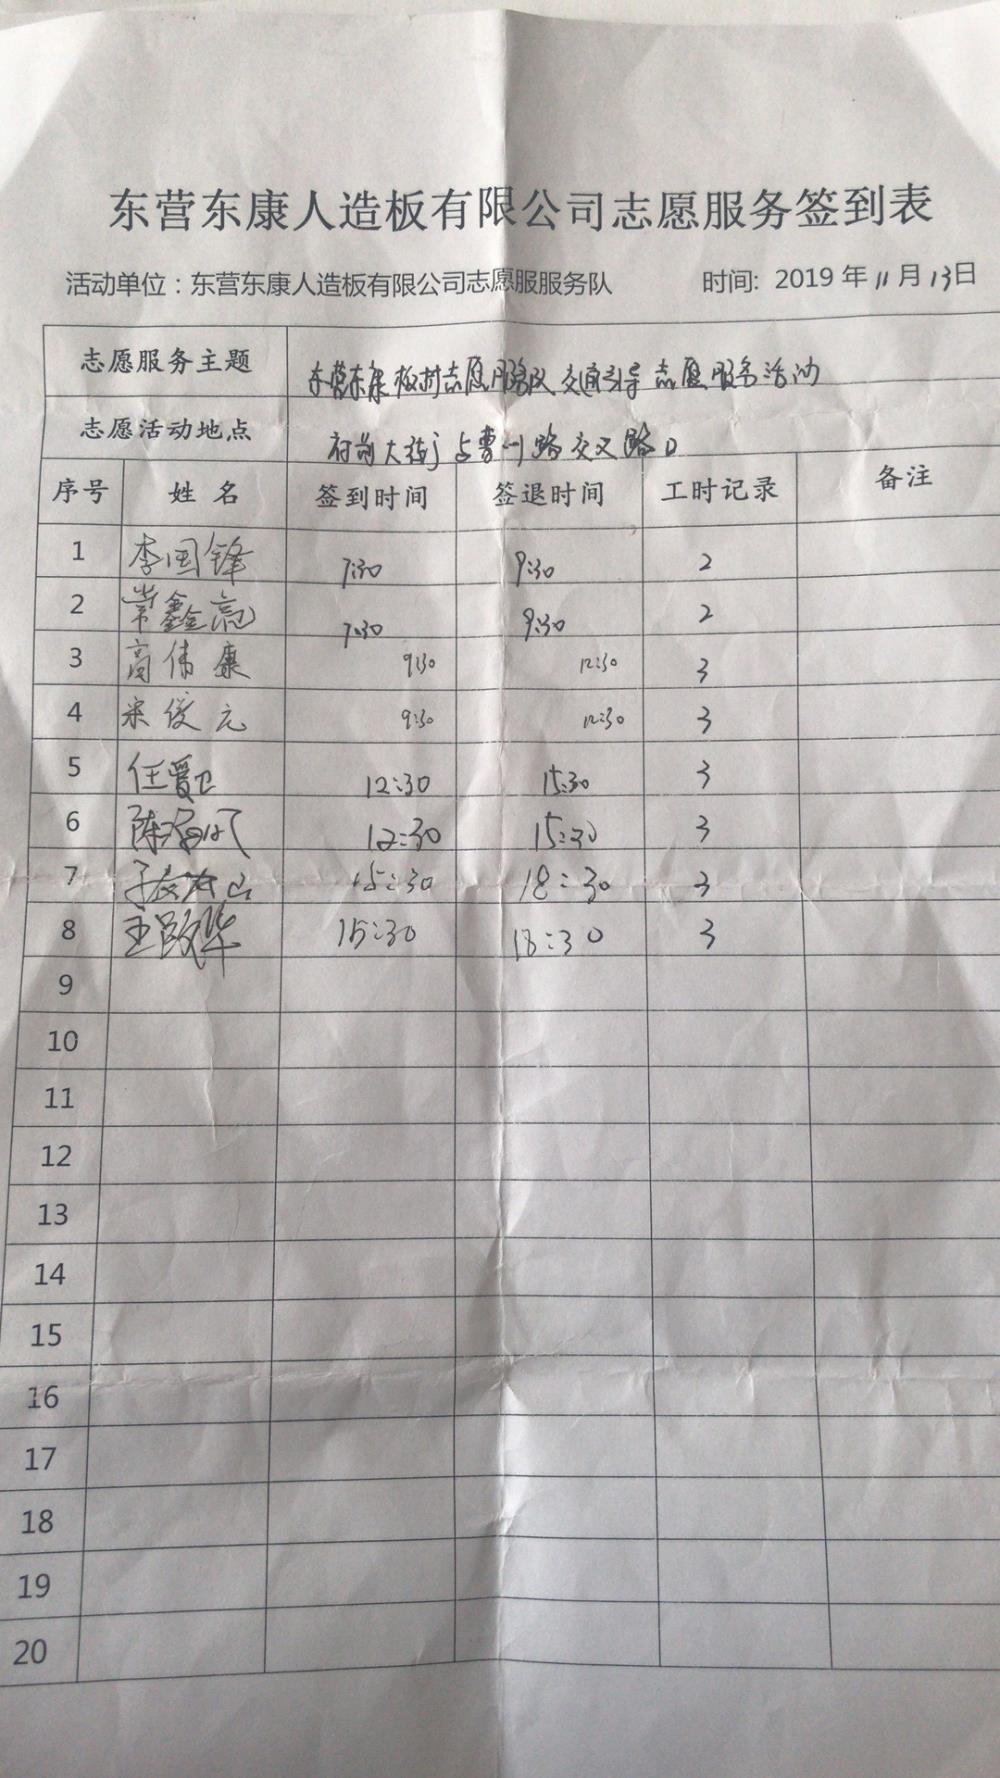 东营东康人造板有限公司志愿服务签到表
活动单位：东营东康人造板有限公司志愿服服务队 时间: 2019 年 11 月 13 日
志愿服务主题 东营东康板材志愿服务队交通引导志愿服务活动
志愿活动地点 府前大街与曹州路交叉路口
序号 姓名 签到时间 签退时间 工时记录 备注
1 李国锋 7:30 9:30 2
2 常鑫亮 7:30 9:30 2
3 高伟康 9:30 12:30 3
4 宋俊元 9:30 12:30 3
5 任爱卫 12:30 15:30 3
6 陈 12:30 15:30 3
7 15:30 18:30 3
8 王 华 15:30 18:30 3
9
10
11
12
13
14
15
16
17
18
19
20